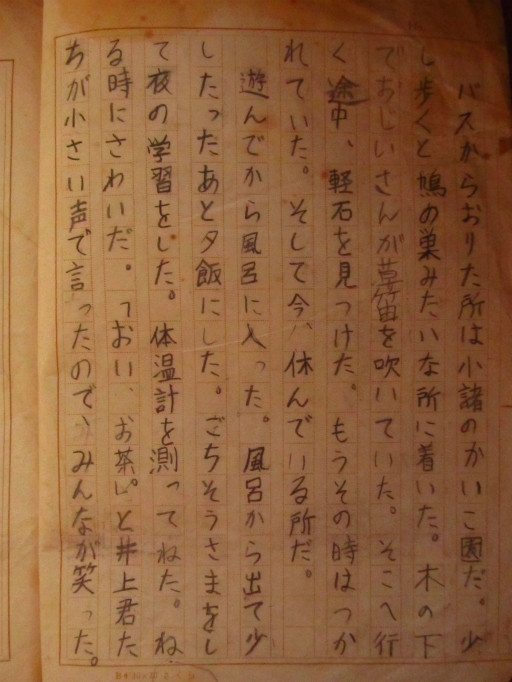 バスからおりた所は小諸のかいこ園だ。少
し歩くと鳩の巣みたいな所に着いた。木の下
でおじいさんが草笛を吹いていた。そこへ行
く途中、軽石を見つけた。もうその時はつか
れていた。そして今、休んでいる所だ。
遊んでから風呂に入った。風呂から出て少
したったあと夕飯にした。ごちそうさまをし
て夜の学習をした。体温計を測ってねた。ね
る時にさわいだ。「おい、お茶。」と井上君た
ちが小さい声で言ったので、みんなが笑った。